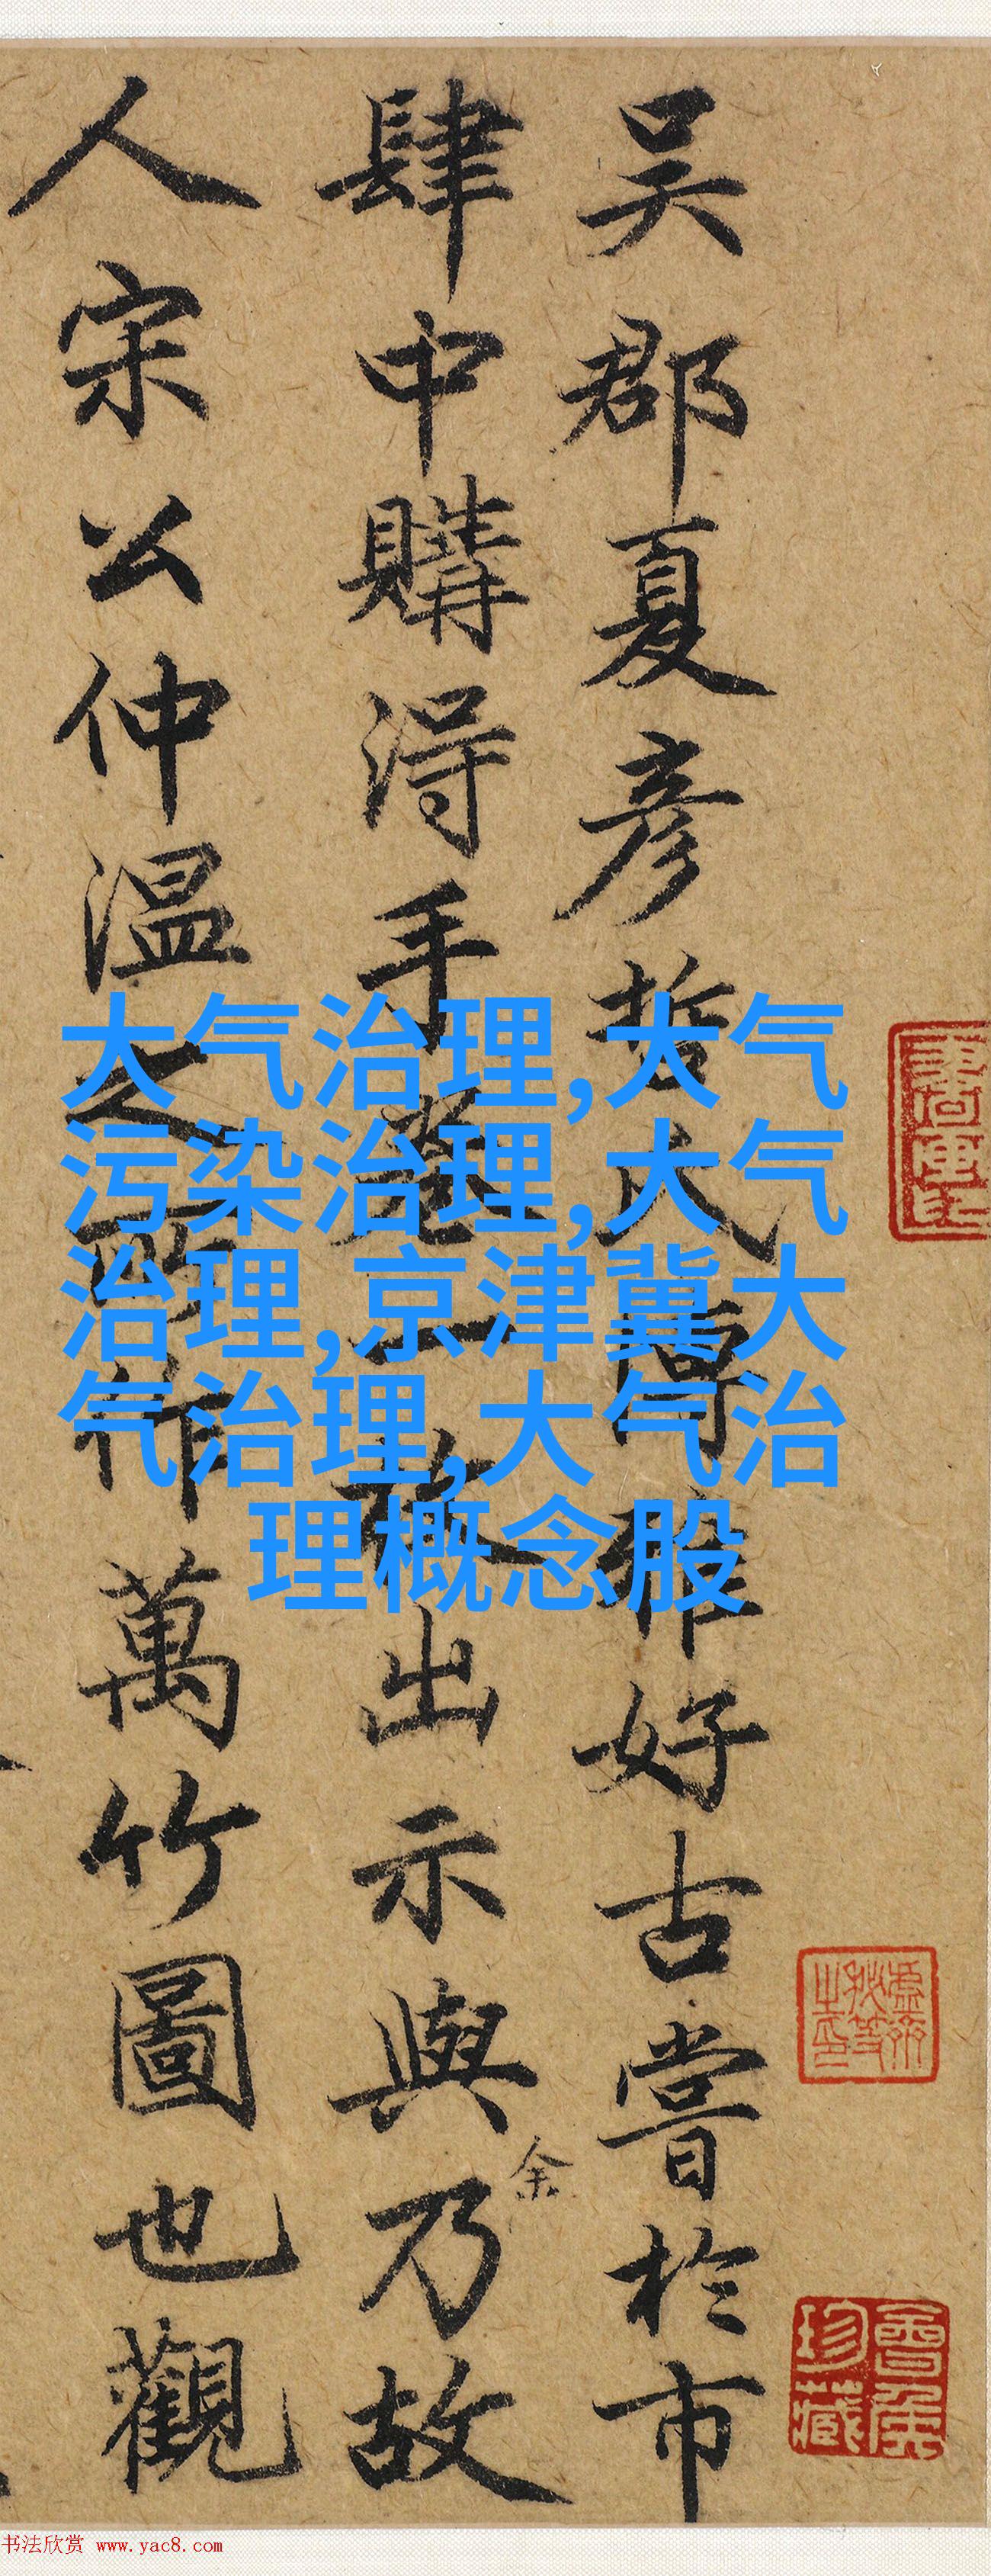 吴郡夏彦哲氏博雅好古嘗於市
肆中購得手卷一故出示與乃故
余
人宋公仲温之所作萬竹圖也觀
大气治理,大气
污染治理,大气
治理,京津冀大
气治理,大气治
理概念股
珍藏
书法欣赏 www.yac8.com